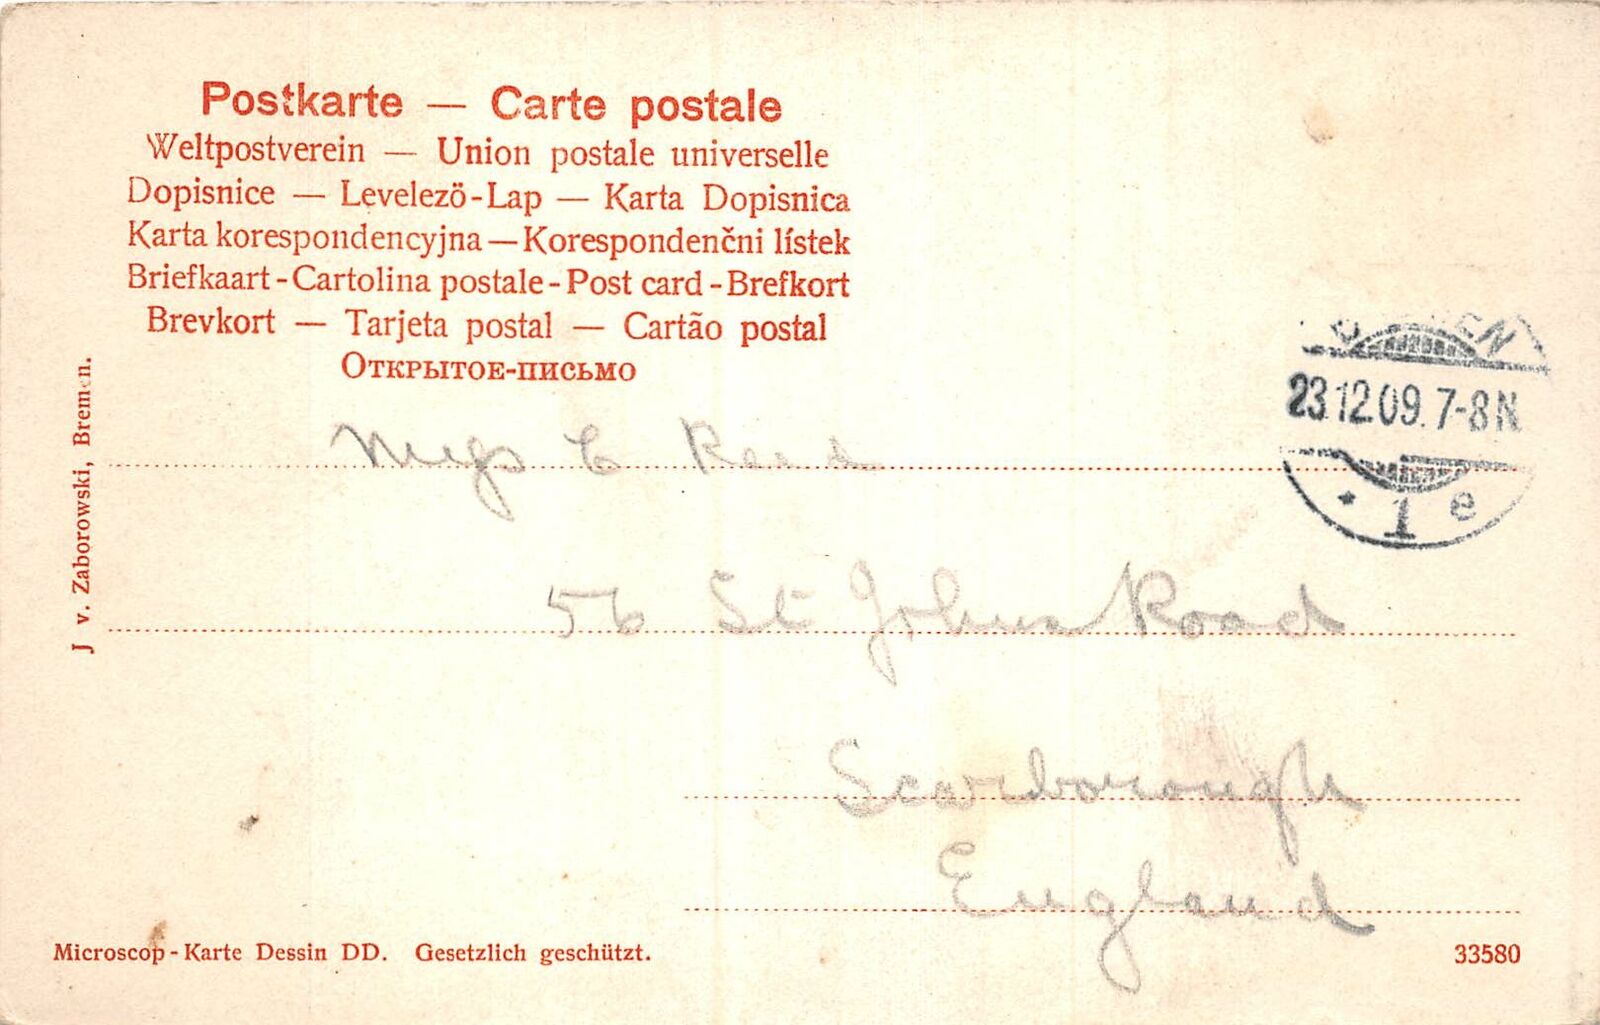 Postkarte — Carte postale
Weltpostverein — Union postale universelle
Dopisnice — Levelező-Lap — Karta Dopisnica
Karta korespondencyjna — Korespondenčni lístek
Briefkaart - Cartolina postale - Post card - Brefkort
Brevkort — Tarjeta postal — Cartão postal
Открытое-письмо
J v. Zaborowski, Bremen.
23.12.09. 7-8N
* 1 e
E
56 St Johns Road
Scarborough
England
Microscop - Karte Dessin DD. Gesetzlich geschützt.
33580